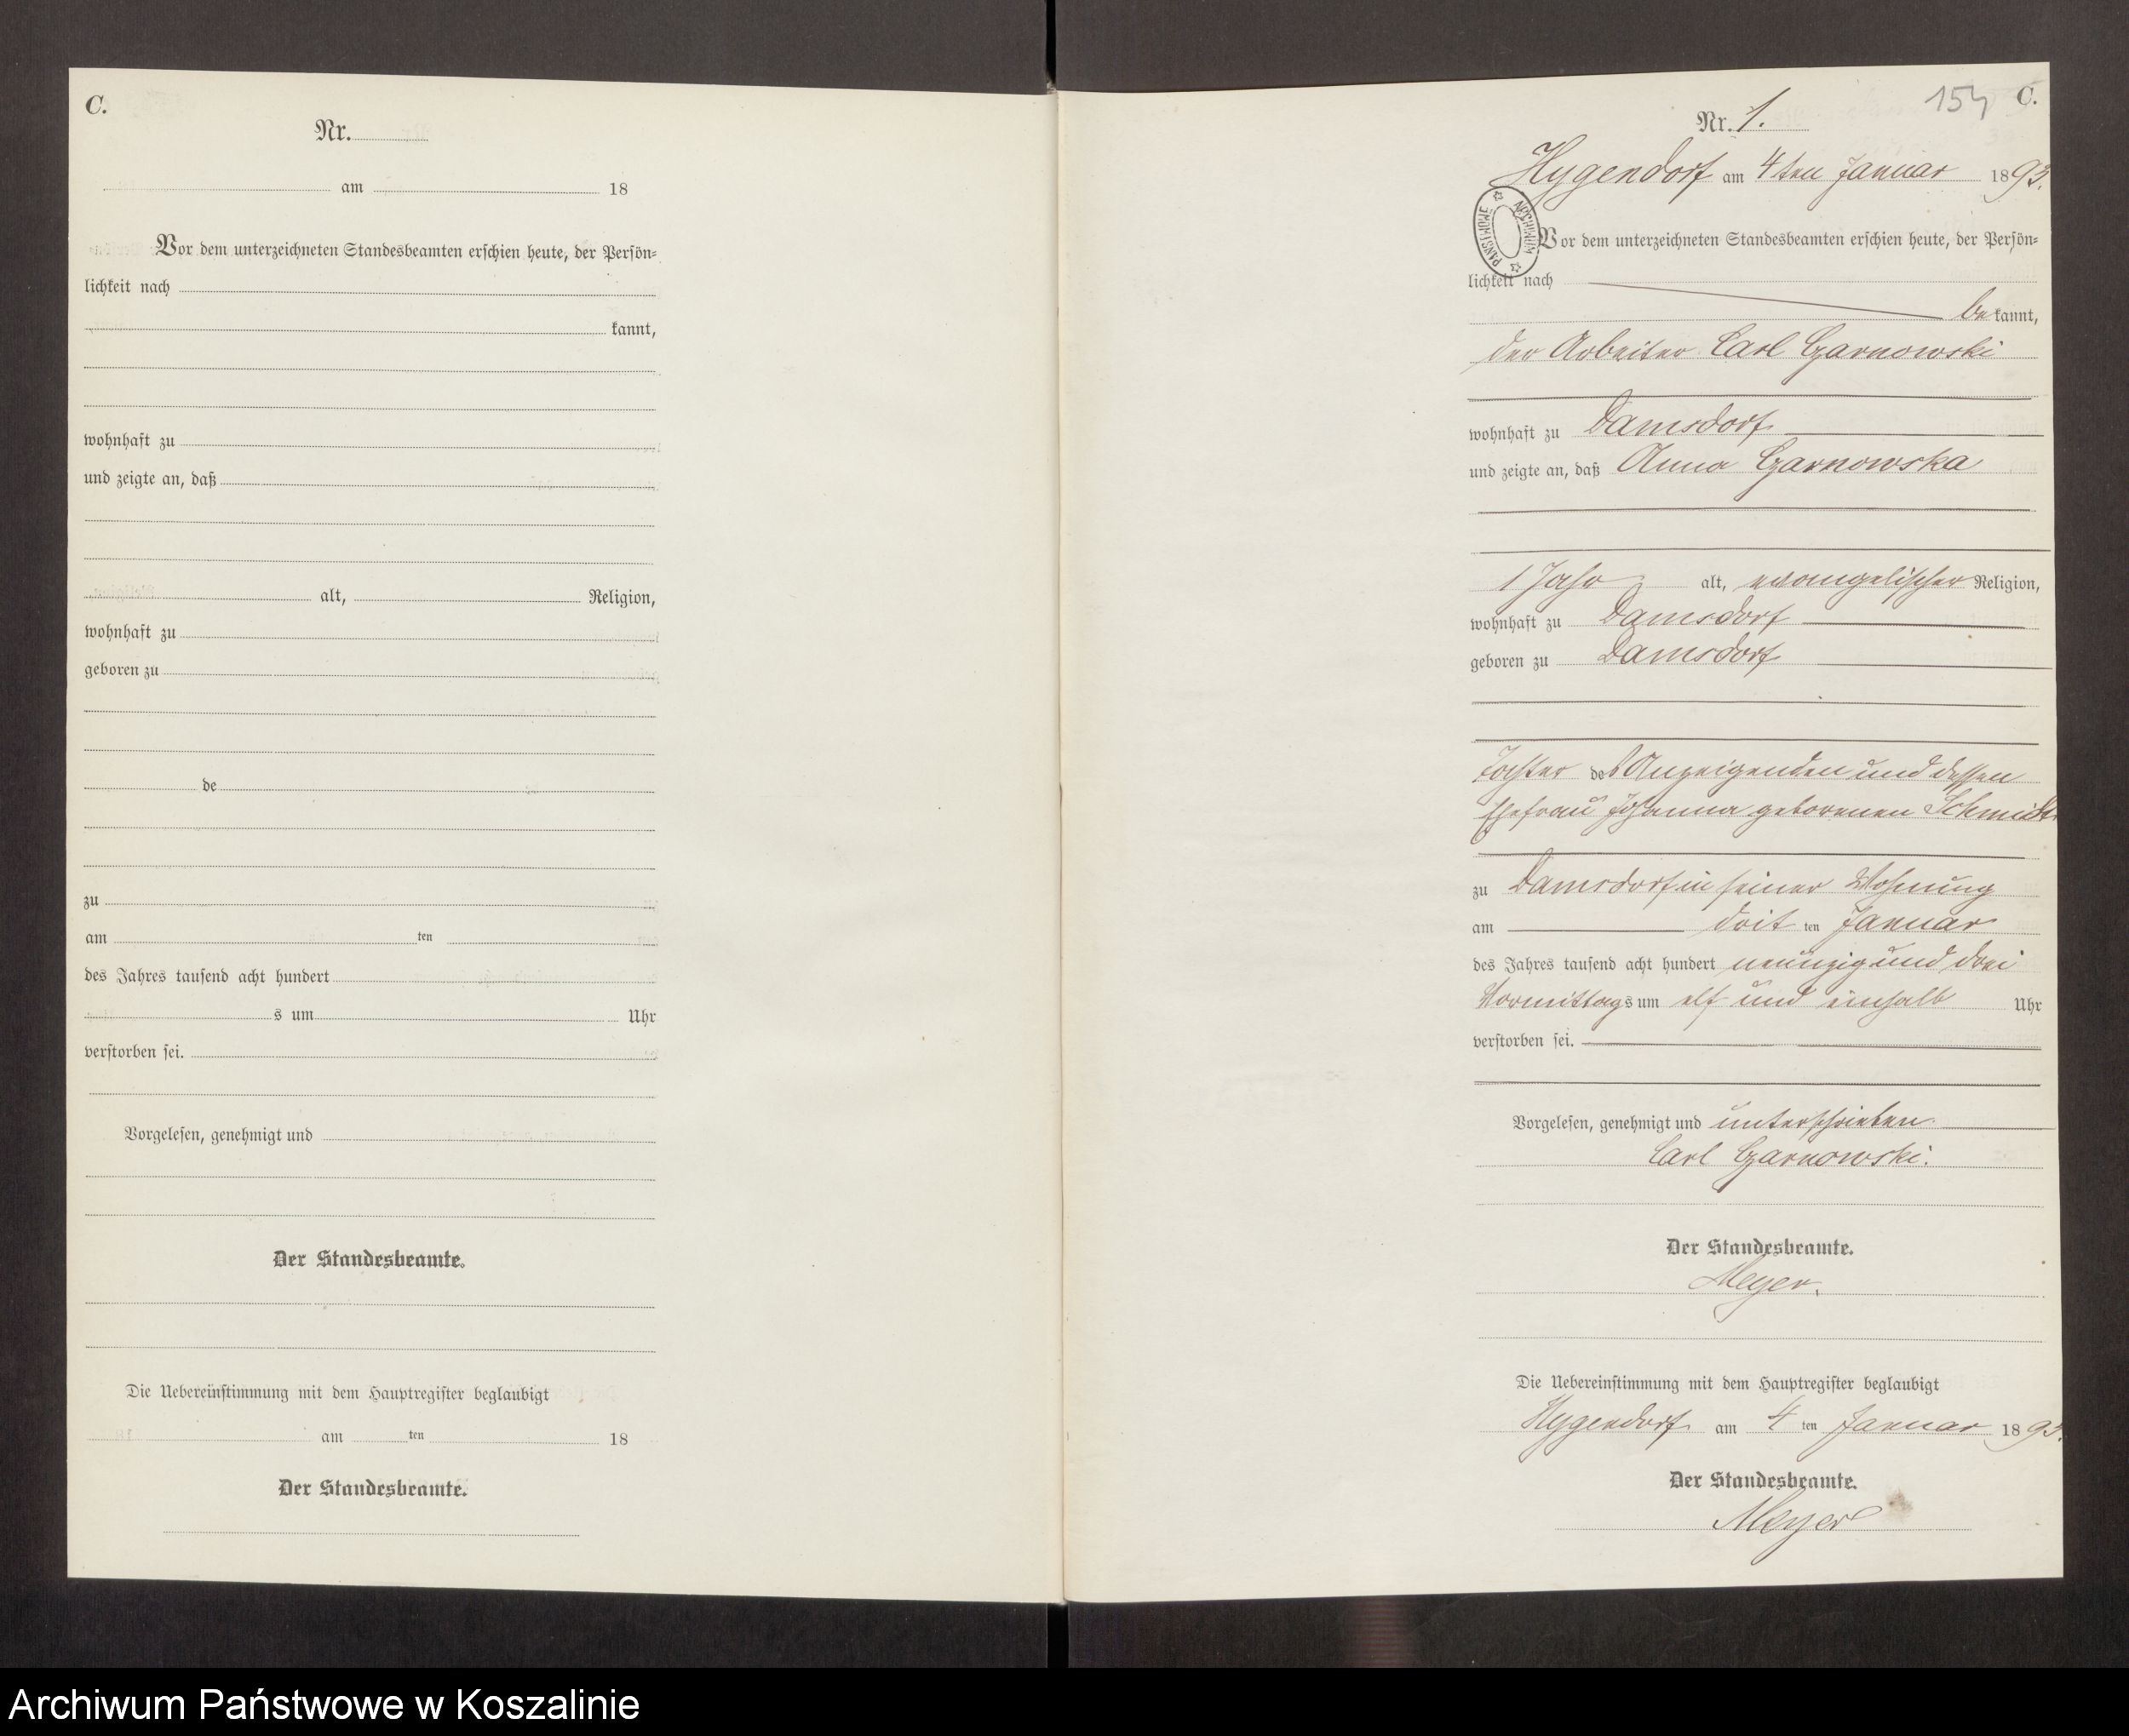 C.
Nr.
am 18
Vor dem unterzeichneten Standesbeamten erschien heute, der Persön-
lichkeit nach
kannt,
wohnhaft zu
und zeigte an, daß
alt, Religion,
wohnhaft zu
geboren zu
de
zu
am ten
des Jahres tausend acht hundert
s um Uhr
verstorben sei.
Vorgelesen, genehmigt und
Der Standesbeamte.
Die Uebereinstimmung mit dem Hauptregister beglaubigt
am ten 18
Der Standesbeamte.
154 C.
Nr. 1.
Hygendorf am 4ten Januar 1893.
ARCHIWUM PAŃSTWOWE
Vor dem unterzeichneten Standesbeamten erschien heute, der Persön-
lichkeit nach
bekannt,
der Arbeiter Carl Czarnowski
wohnhaft zu Damsdorf
und zeigte an, daß Anna Czarnowska
1 Jahr alt, evangelischer Religion,
wohnhaft zu Damsdorf
geboren zu Damsdorf
Tochter des Anzeigenden und dessen
Ehefrau Johanna geborenen Schmidt
zu Damsdorf in seiner Wohnung
am dritten Januar
des Jahres tausend acht hundert neunzig und drei
Vormittags um elf und einhalb Uhr
verstorben sei.
Vorgelesen, genehmigt und unterschrieben.
Carl Czarnowski.
Der Standesbeamte.
Meyer.
Die Uebereinstimmung mit dem Hauptregister beglaubigt
Hygendorf am 4 ten Januar 1893.
Der Standesbeamte.
Meyer
Archiwum Państwowe w Koszalinie